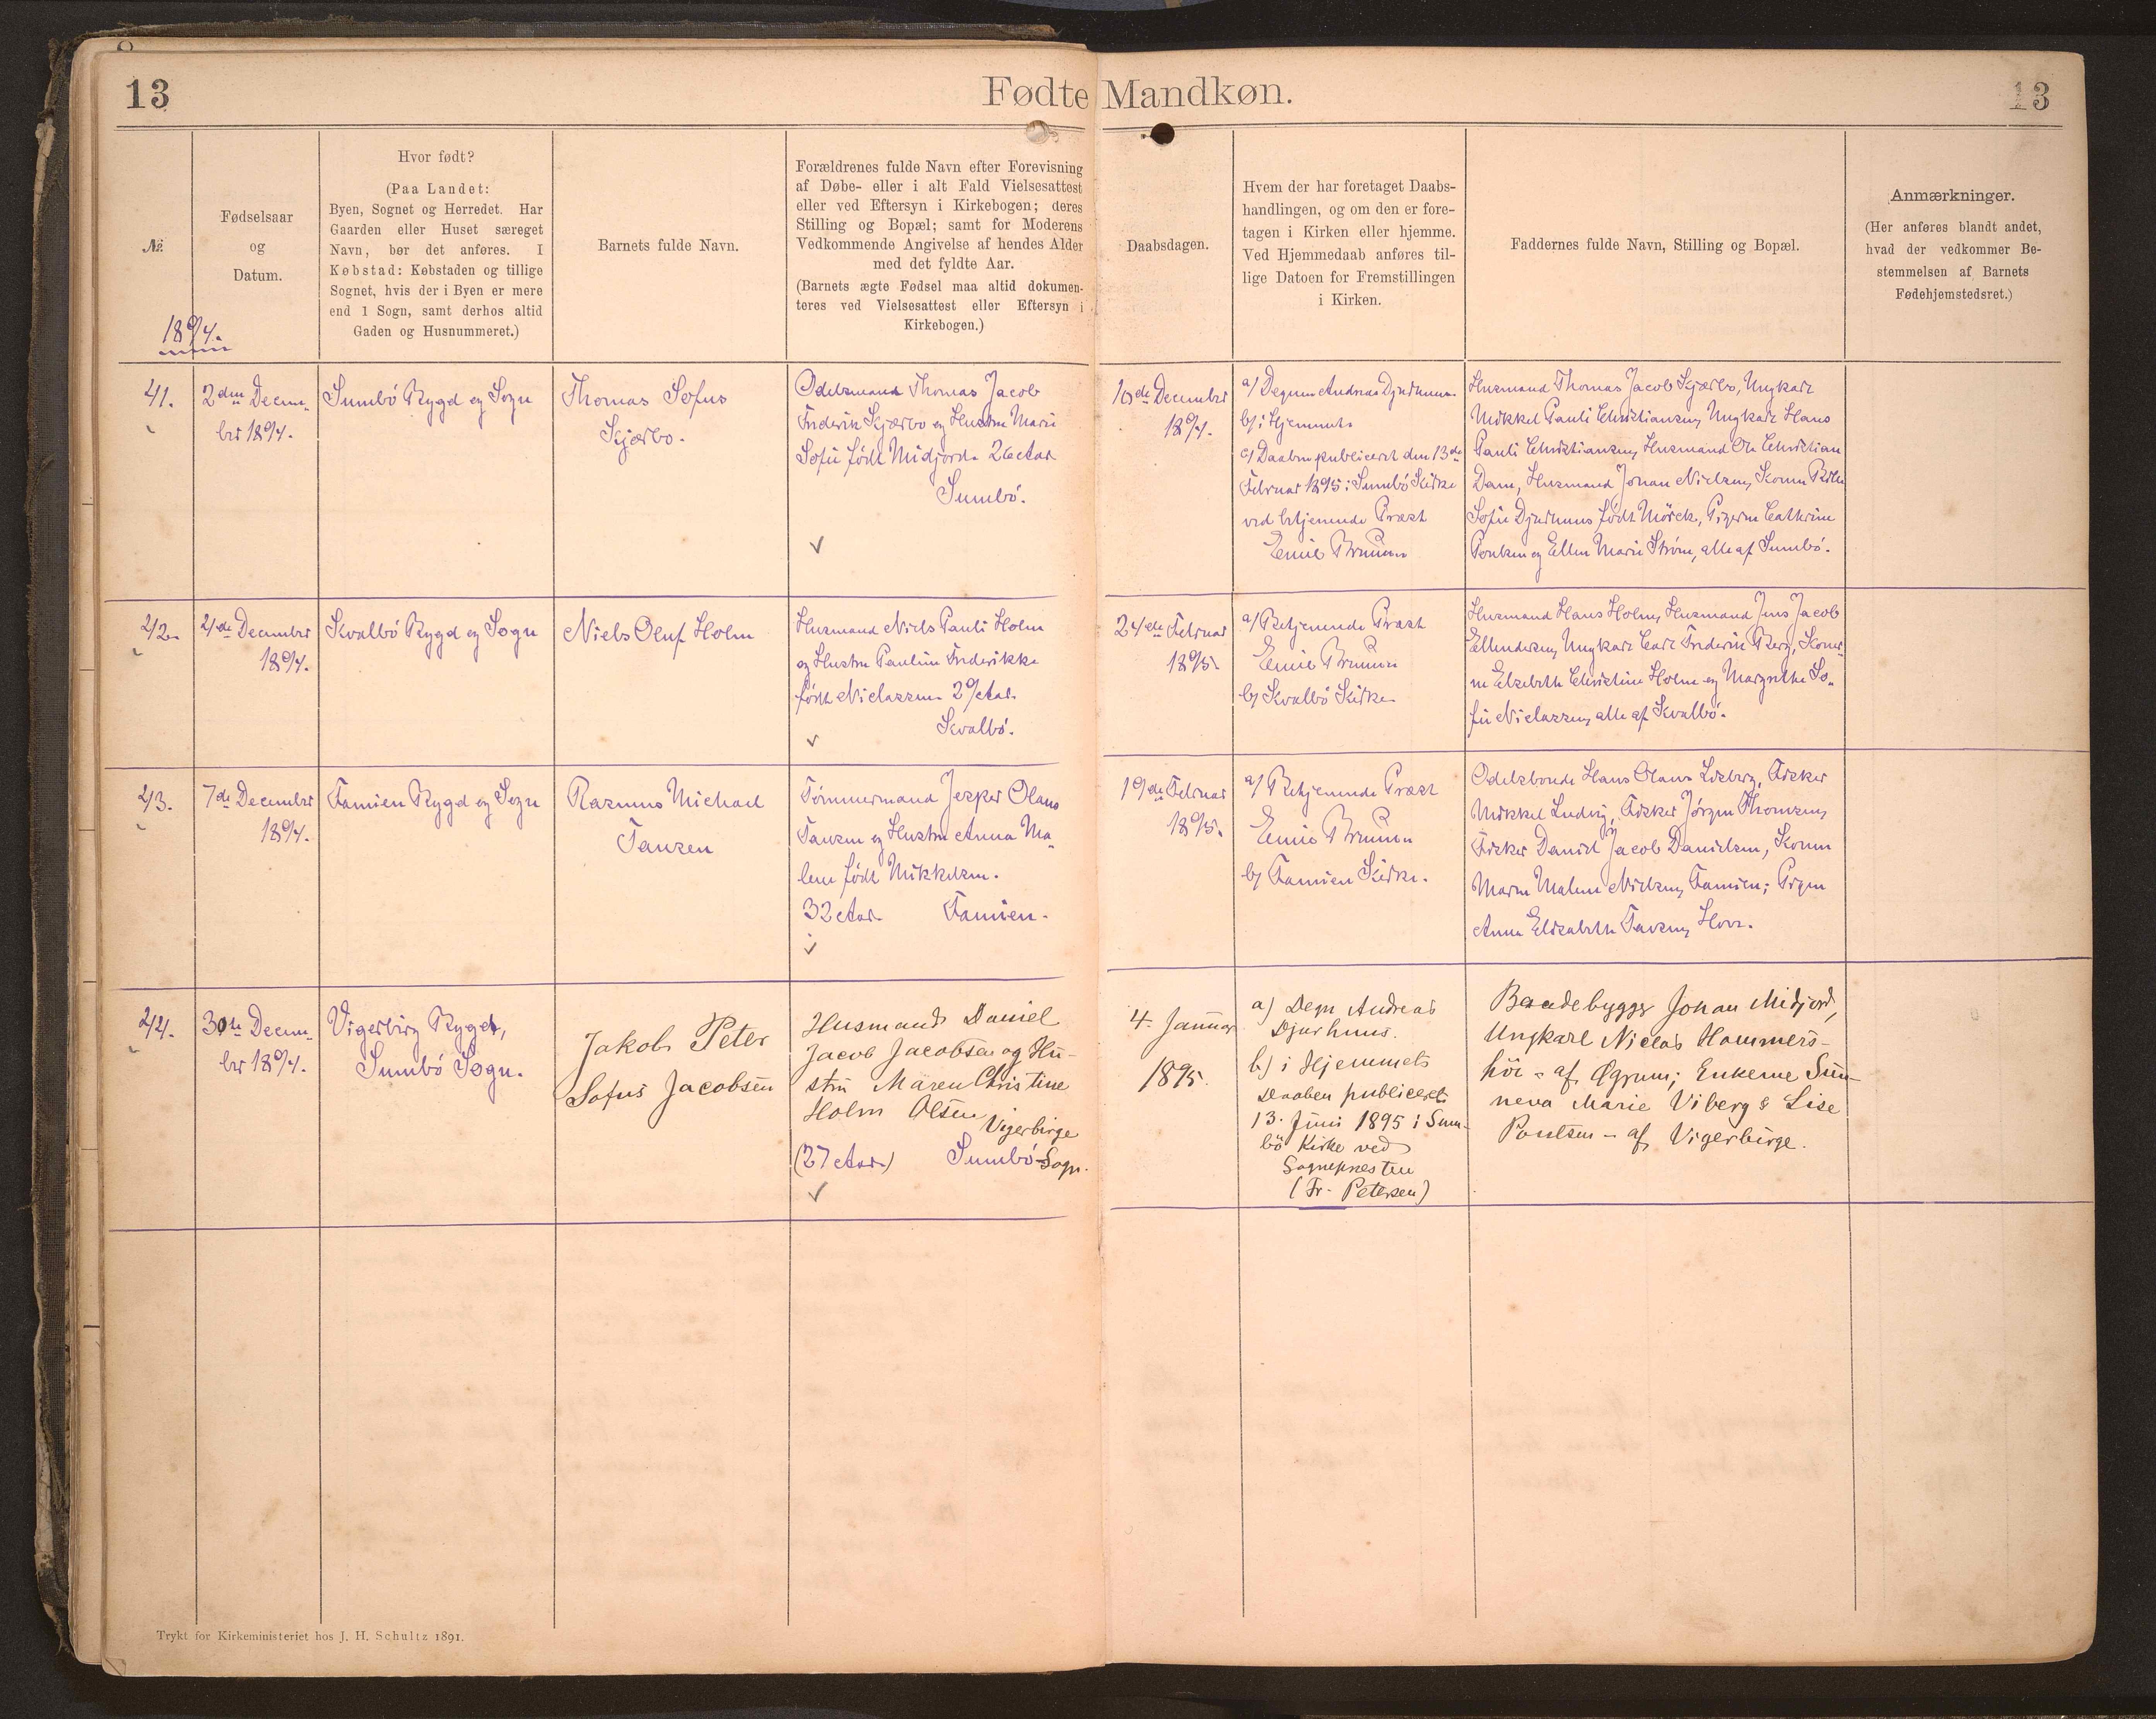 13
Fødte Mandkøn.
13
№
Fødselsaar
og
Datum.
Hvor født?
(Paa Landet:
Byen, Sognet og Herredet. Har
Gaarden eller Huset særeget
Navn, bør det anføres. I
Købstad: Købstaden og tillige
Sognet, hvis der i Byen er mere
end 1 Sogn, samt derhos altid
Gaden og Husnummeret.)
Barnets fulde Navn.
Forældrenes fulde Navn efter Forevisning
af Døbe- eller i alt Fald Vielsesattest
eller ved Eftersyn i Kirkebogen; deres
Stilling og Bopæl; samt for Moderens
Vedkommende Angivelse af hendes Alder
med det fyldte Aar.
(Barnets ægte Fødsel maa altid dokumen-
teres ved Vielsesattest eller Eftersyn i
Kirkebogen.)
Daabsdagen.
Hvem der har foretaget Daabs-
handlingen, og om den er fore-
tagen i Kirken eller hjemme.
Ved Hjemmedaab anføres til-
lige Datoen for Fremstillingen
i Kirken.
Faddernes fulde Navn, Stilling og Bopæl.
Anmærkninger.
(Her anføres blandt andet,
hvad der vedkommer Be-
stemmelsen af Barnets
Fødehjemstedsret.)
1894.
41.
2den Decem-
ber 1894.
Sumbö Bygd og Sogn
Thomas Sofus
Kjærbo.
Odelsmand Thomas Jacob
Frederik Kjærbo og Hustru Marie
Sofie født Midjord. 26 Aar.
Sumbö.
10de December
1894.
a) Degnen Andreas Djurhuus.
b) i Hjemmet.
c) Daaben publiceret den 13de
Februar 1895 i Sumbö Kirke
ved betjenende Præst
Emil Bruun
Husmand Thomas Jacob Kjærbo, Ungkarl
Mikkel Pauli Christiansen, Ungkarl Hans
Pauli Christiansen, Husmand Ole Christian
Dam, Husmand Johan Nielsen, Konen
Sofie Djurhuus født Mörck, Pigerne Cathrine
Poulsen og Ellen Marie Ström, alle af Sumbö.
42.
4de December
1894.
Kvalbö Bygd og Sogn
Niels Oluf Holm
Husmand Niels Pauli Holm
og Hustru Pauline Frederikke
født Niclassen. 29 Aar.
Kvalbö.
24de Februar
1895.
a) Betjenende Præst
Emil Bruun
b) Kvalbö Kirke.
Husmand Hans Holm, Husmand Jens Jacob
Ellendersen, Ungkarl Carl Frederik Berg, Koner-
ne Elsebeth Christine Holm og Margrethe So-
fie Niclassen, alle af Kvalbö.
43.
7de December
1894.
Famien Bygd og Sogn
Rasmus Michael
Tausen
Tömmermand Jesper Olaus
Tausen og Hustru Anna Ma-
lene født Mikkelsen.
32 Aar. Famien.
19de Februar
1895.
a) Betjenende Præst
Emil Bruun
b) Famien Kirke.
Odelsbonde Hans Olaus Lisberg, Fisker
Mikkel Ludvig, Fisker Jörgen Thomsen,
Fisker Daniel Jacob Danielsen, Konen
Maren Malene Nielsen, Famien; Pigen
Anna Elisabeth Tausen, Hove.
44.
30te Decem-
ber 1894.
Vigerbirg Bygd,
Sumbö Sogn.
Jakob Peter
Sofus Jacobsen
Husmand Daniel
Jacob Jacobsen og Hu-
stru Maren Christine
Holm Olsen
Vigerbirge
(27 Aar.) Sumbö-Sogn.
4. Januar
1895.
a) Degn Andreas
Djurhuus.
b) i Hjemmets
Daaben publiceret
13. Juni 1895 i Sum-
bö Kirke ved
Sognepresten
(Fr. Petersen)
Baadebygger Johan Midjord,
Ungkarl Niclas Hammers-
höi - af Øgrum; Enkerne Sün-
neva Marie Viberg & Lise
Poulsen - af Vigerbirge.
Trykt for Kirkeministeriet hos J. H. Schultz 1891.